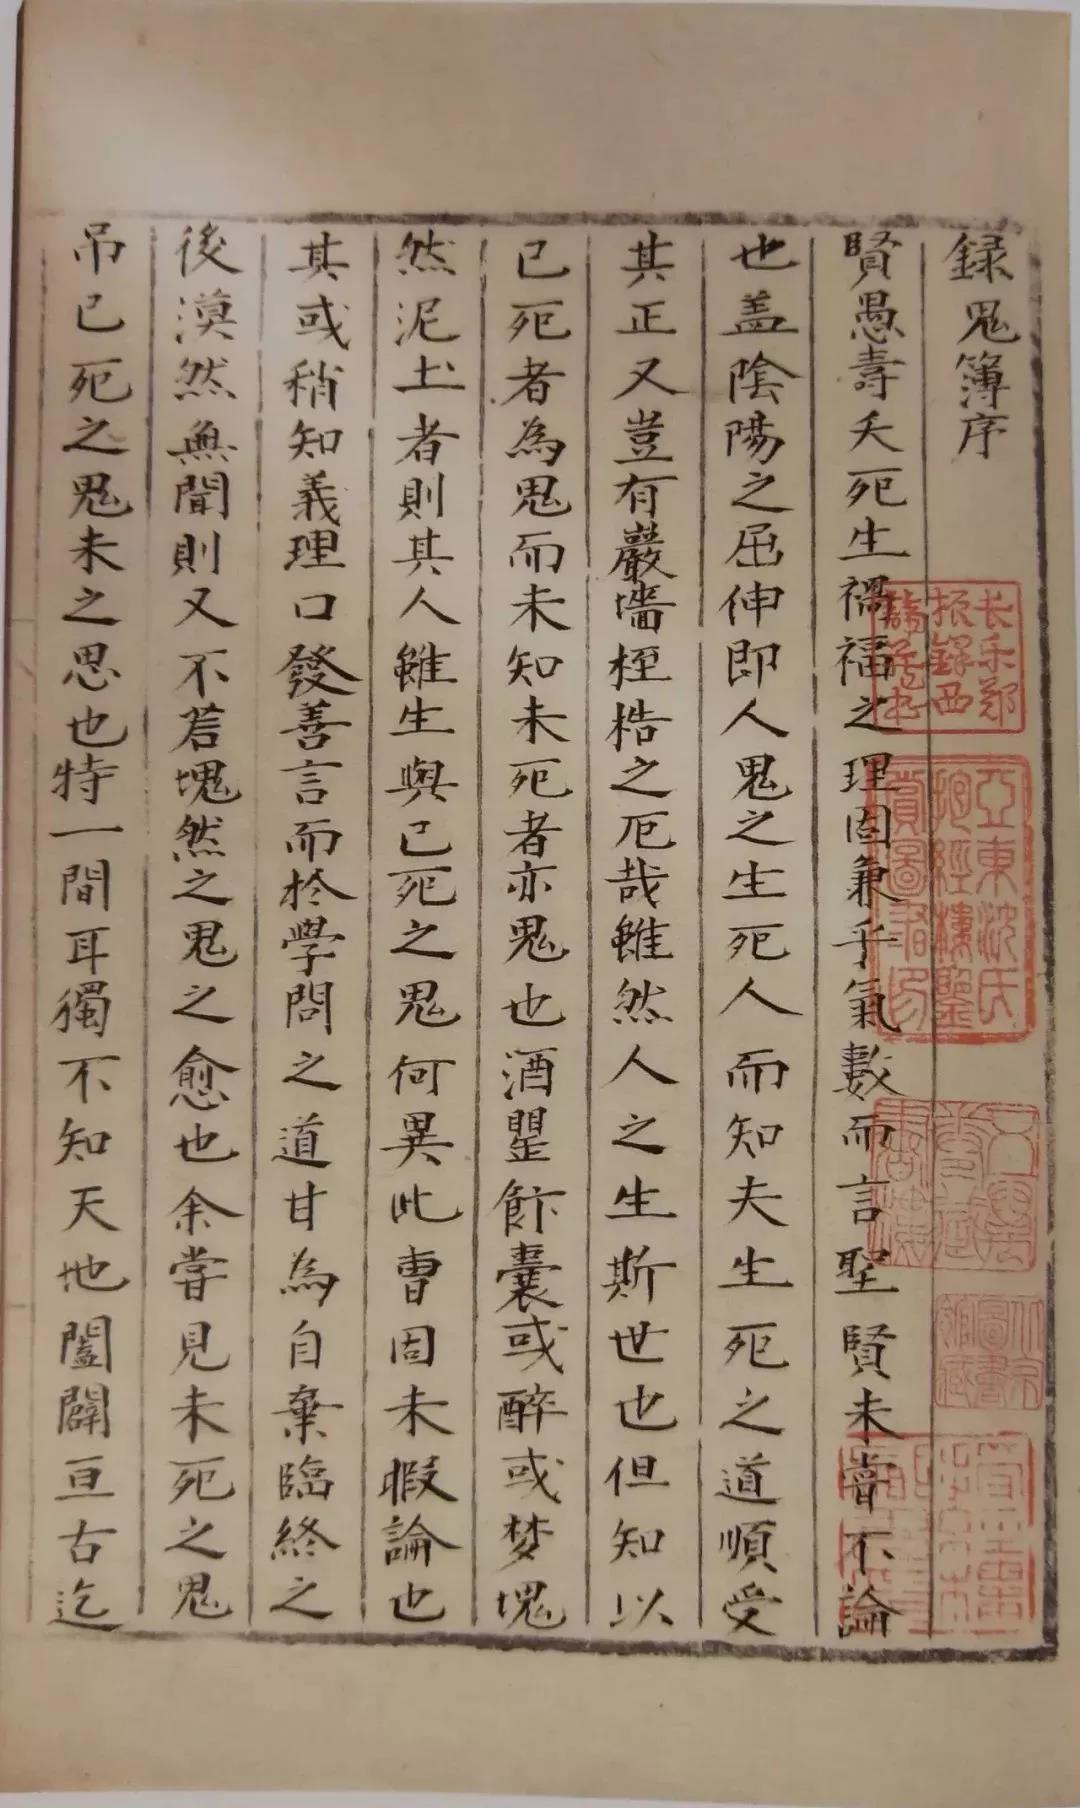 録鬼簿序
賢愚壽夭死生禍福之理固兼乎氣數而言聖賢未嘗不論
也盖陰陽之屈伸即人鬼之生死人而知夫生死之道順受
其正又豈有巖墻桎梏之厄哉雖然人之生斯世也但知以
已死者為鬼而未知未死者亦鬼也酒罌飰囊或醉或梦塊
然泥土者則其人雖生與已死之鬼何異此曹固未暇論也
其或稍知義理口發善言而於學問之道甘為自棄臨終之
後漠然無聞則又不若塊然之鬼之愈也余嘗見未死之鬼
吊已死之鬼未之思也特一間耳獨不知天地闔闢亘古迄
长乐郑
振鐸西
諦藏书
亞東沈氏
抱經樓鑒
賞圖書印